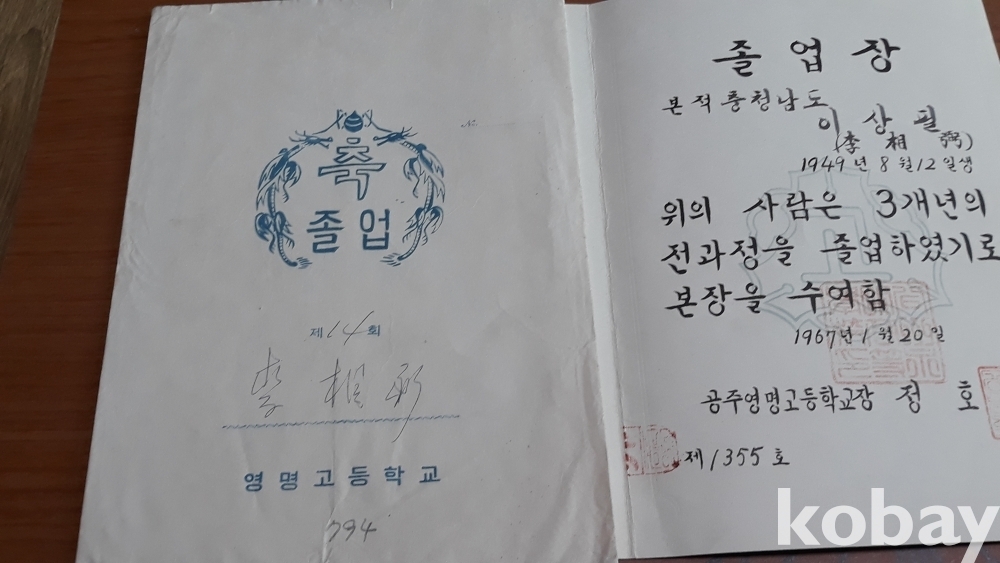 축
졸업
제14회
李相弼
영명고등학교
794
졸업장
본적충청남도
이상필
(李相弼)
1949년 8월12일생
위의 사람은 3개년의
전과정을 졸업하였기로
본장을 수여함
1967년 1월 20일
공주영명고등학교장 정호
제1355호
kobay